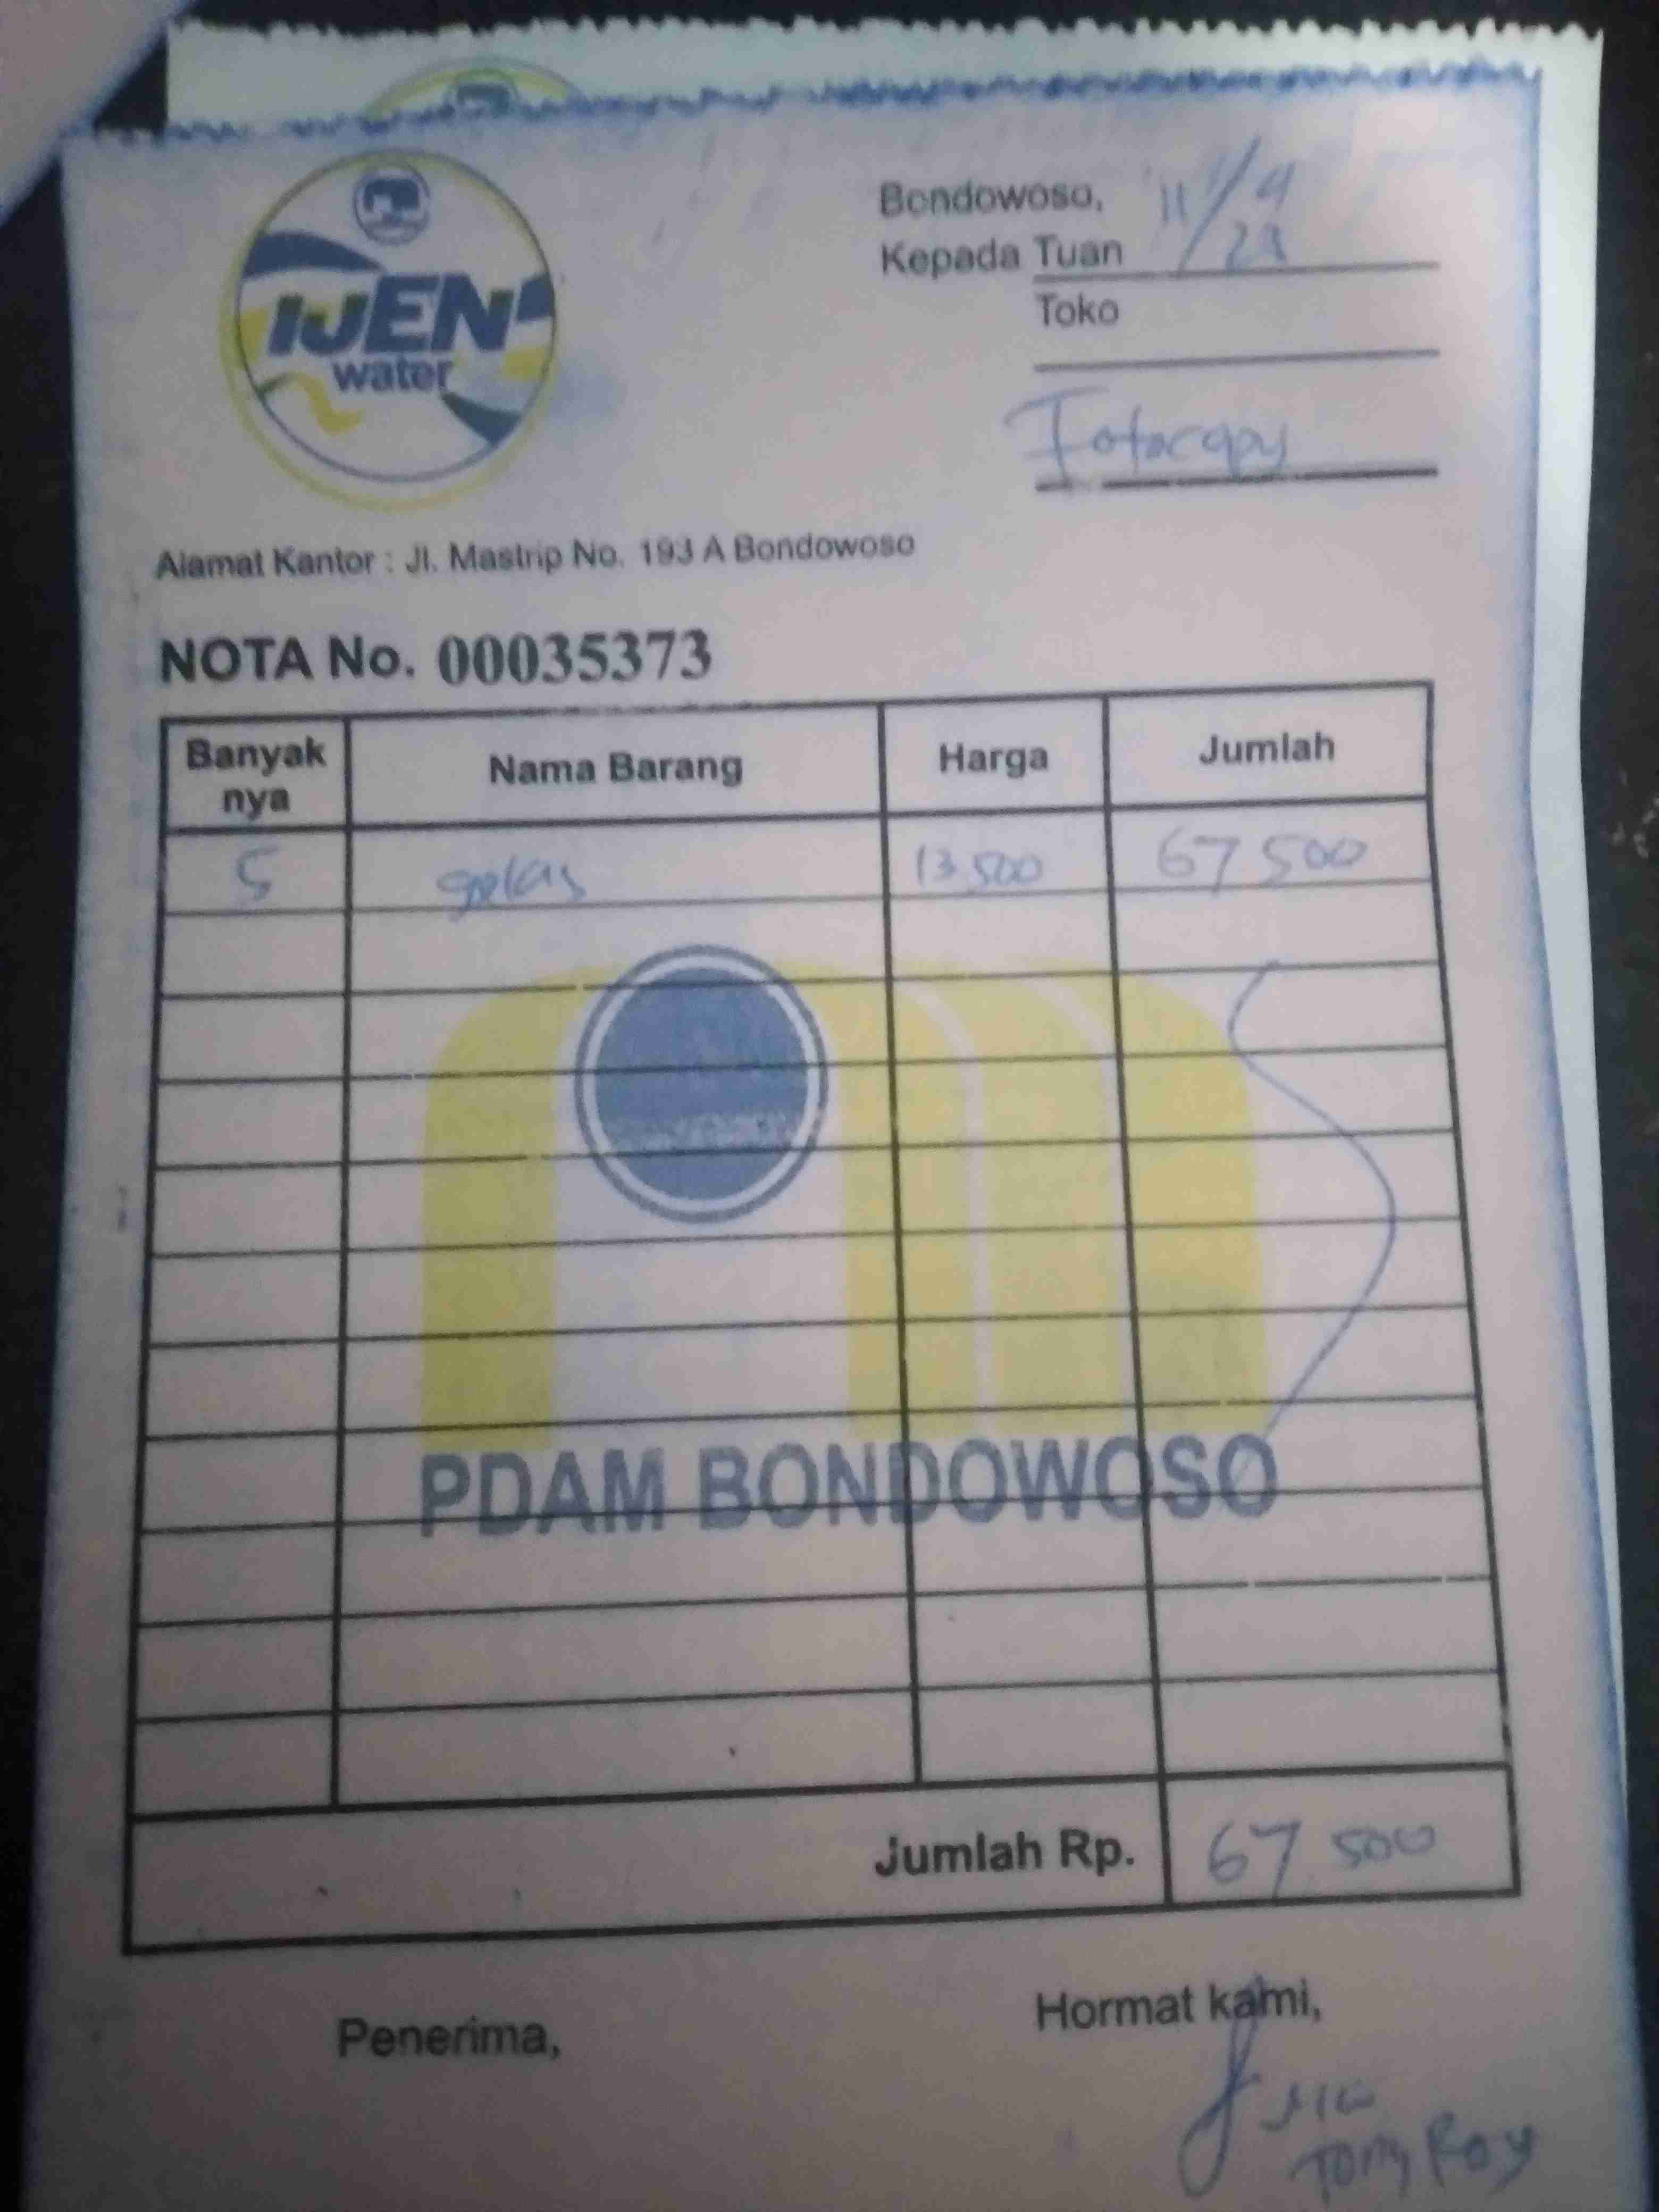 IJEN
water
Bondowoso, 11/9/23
Kepada Tuan
Toko
Fotocopy
Alamat Kantor : Jl. Mastrip No. 193 A Bondowoso
NOTA No. 00035373
Banyak nya Nama Barang Harga Jumlah
5 gelas 13 500 67 500
PDAM BONDOWOSO
Jumlah Rp. 67 500
Penerima, Hormat kami,
Tony Roy